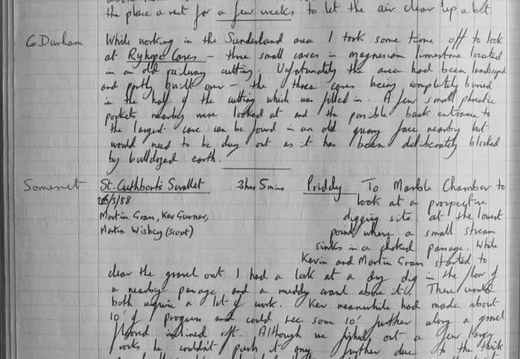 the place a rest for a few weeks to let the air clear up a bit.
Co Durham While working in the Sunderland area I took some time off to look
at Ryhope Caves – three small caves in magnesian limestone located
in an old railway cutting. Unfortunately the area had been landscaped
and partly built over – the three caves being completely buried
in the half of the cutting which was filled in. A few small phreatic
pockets nearby were looked at and the possible back entrance to
the largest cave can be found in an old quarry face nearby but
would need to be dug out as it has been deliberately blocked
by bulldozed earth.
Somerset St. Cuthbert's Swallet 3hrs 5mins Priddy To Marble Chamber to
/5/88 look at a prospective
Martin Grass, Kev Gurner, digging site at the lowest
Martin Wisbey (scout) point where a small stream
sinks in a choked passage. While
Kevin and Martin Grass started to
clear the gravel out I had a look at a dry dig in the floor of
a nearby passage, and a muddy crawl above it. These would
both require a lot of work. Kev meanwhile had made about
10' of progress and could see some 10' further along a gravel
floored inclined rift. Although we fished out a few large
rocks he couldn't push it any further due to the thick